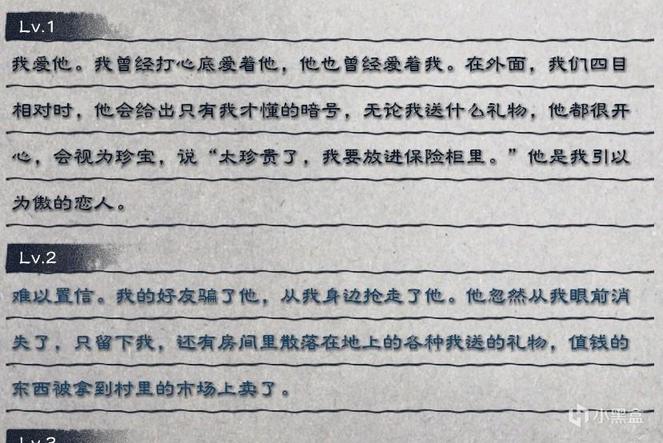 Lv.1
我爱他。我曾经打心底爱着他，他也曾经爱着我。在外面，我们四目
相对时，他会给出只有我才懂的暗号，无论我送什么礼物，他都很开
心，会视为珍宝，说“太珍贵了，我要放进保险柜里。”他是我引以
为傲的恋人。
Lv.2
难以置信。我的好友骗了他，从我身边抢走了他。他忽然从我眼前消
失了，只留下我，还有房间里散落在地上的各种我送的礼物，值钱的
东西被拿到村里的市场上卖了。
小黑盒
Lv.3